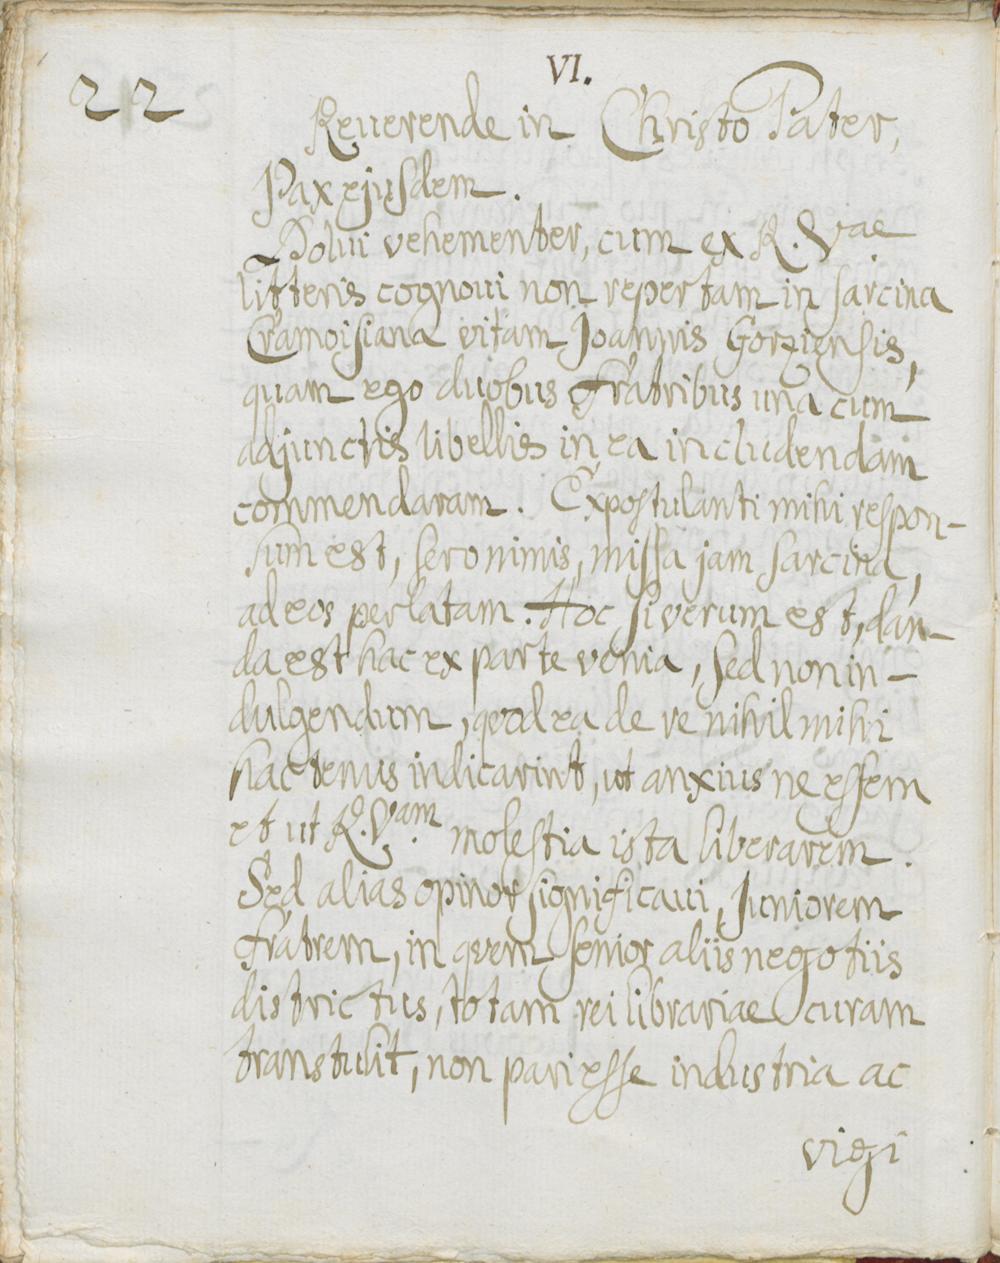 22
VI.
Reuerende in Christo Pater,
Pax ejusdem.
Dolui vehementer, cum ex R. Vae
litteris cognoui non repertam in sarcina
Cramoisiana vitam Joannis Gorziensis,
quam ego duobus fratribus una cum
adjunctis libellis in ea includendam
commendaram. Expostulanti mihi respon-
sum est, sero nimis, missa jam sarcina,
ad eos perlatam. Hoc si verum est, dan-
da est hac ex parte venia, sed non in-
dulgendum, quod ea de re nihil mihi
hactenus indicarint, ut anxius ne essem
et ut R. Vam. molestia ista liberarem.
Sed alias opinor significaui, Juniorem
fratrem, in quem senior aliis negotiis
districtus, totam rei librariae curam
transtulit, non pari esse industria ac
vigi